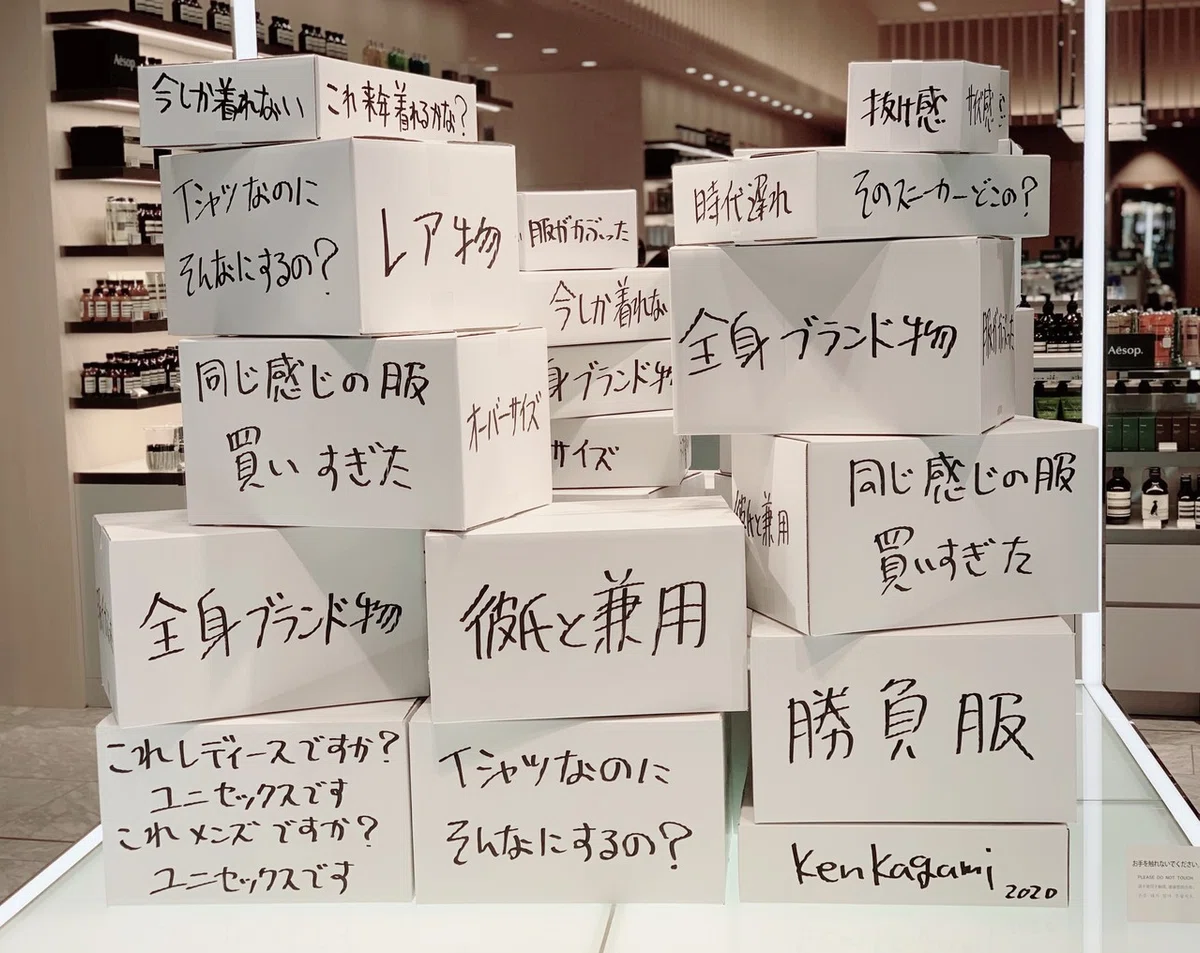 Aēsop.
今しか着れない
これ来年着れるかな?
Tシャツなのに
そんなにするの?
レア物
同じ感じの服
買いすぎた
オーバーサイズ
全身ブランド物
彼氏と兼用
これレディースですか?
ユニセックスです
これメンズですか?
ユニセックスです
Tシャツなのに
そんなにするの?
服がかぶった
今しか着れな
身ブランド物
サイズ
抜け感
時代遅れ
そのスニーカーどこの?
全身ブランド物
服がかぶった
彼氏と兼用
同じ感じの服
買いすぎた
勝負服
Ken Kagami
2020
Aēsop.
お手を触れないでください。
PLEASE DO NOT TOUCH